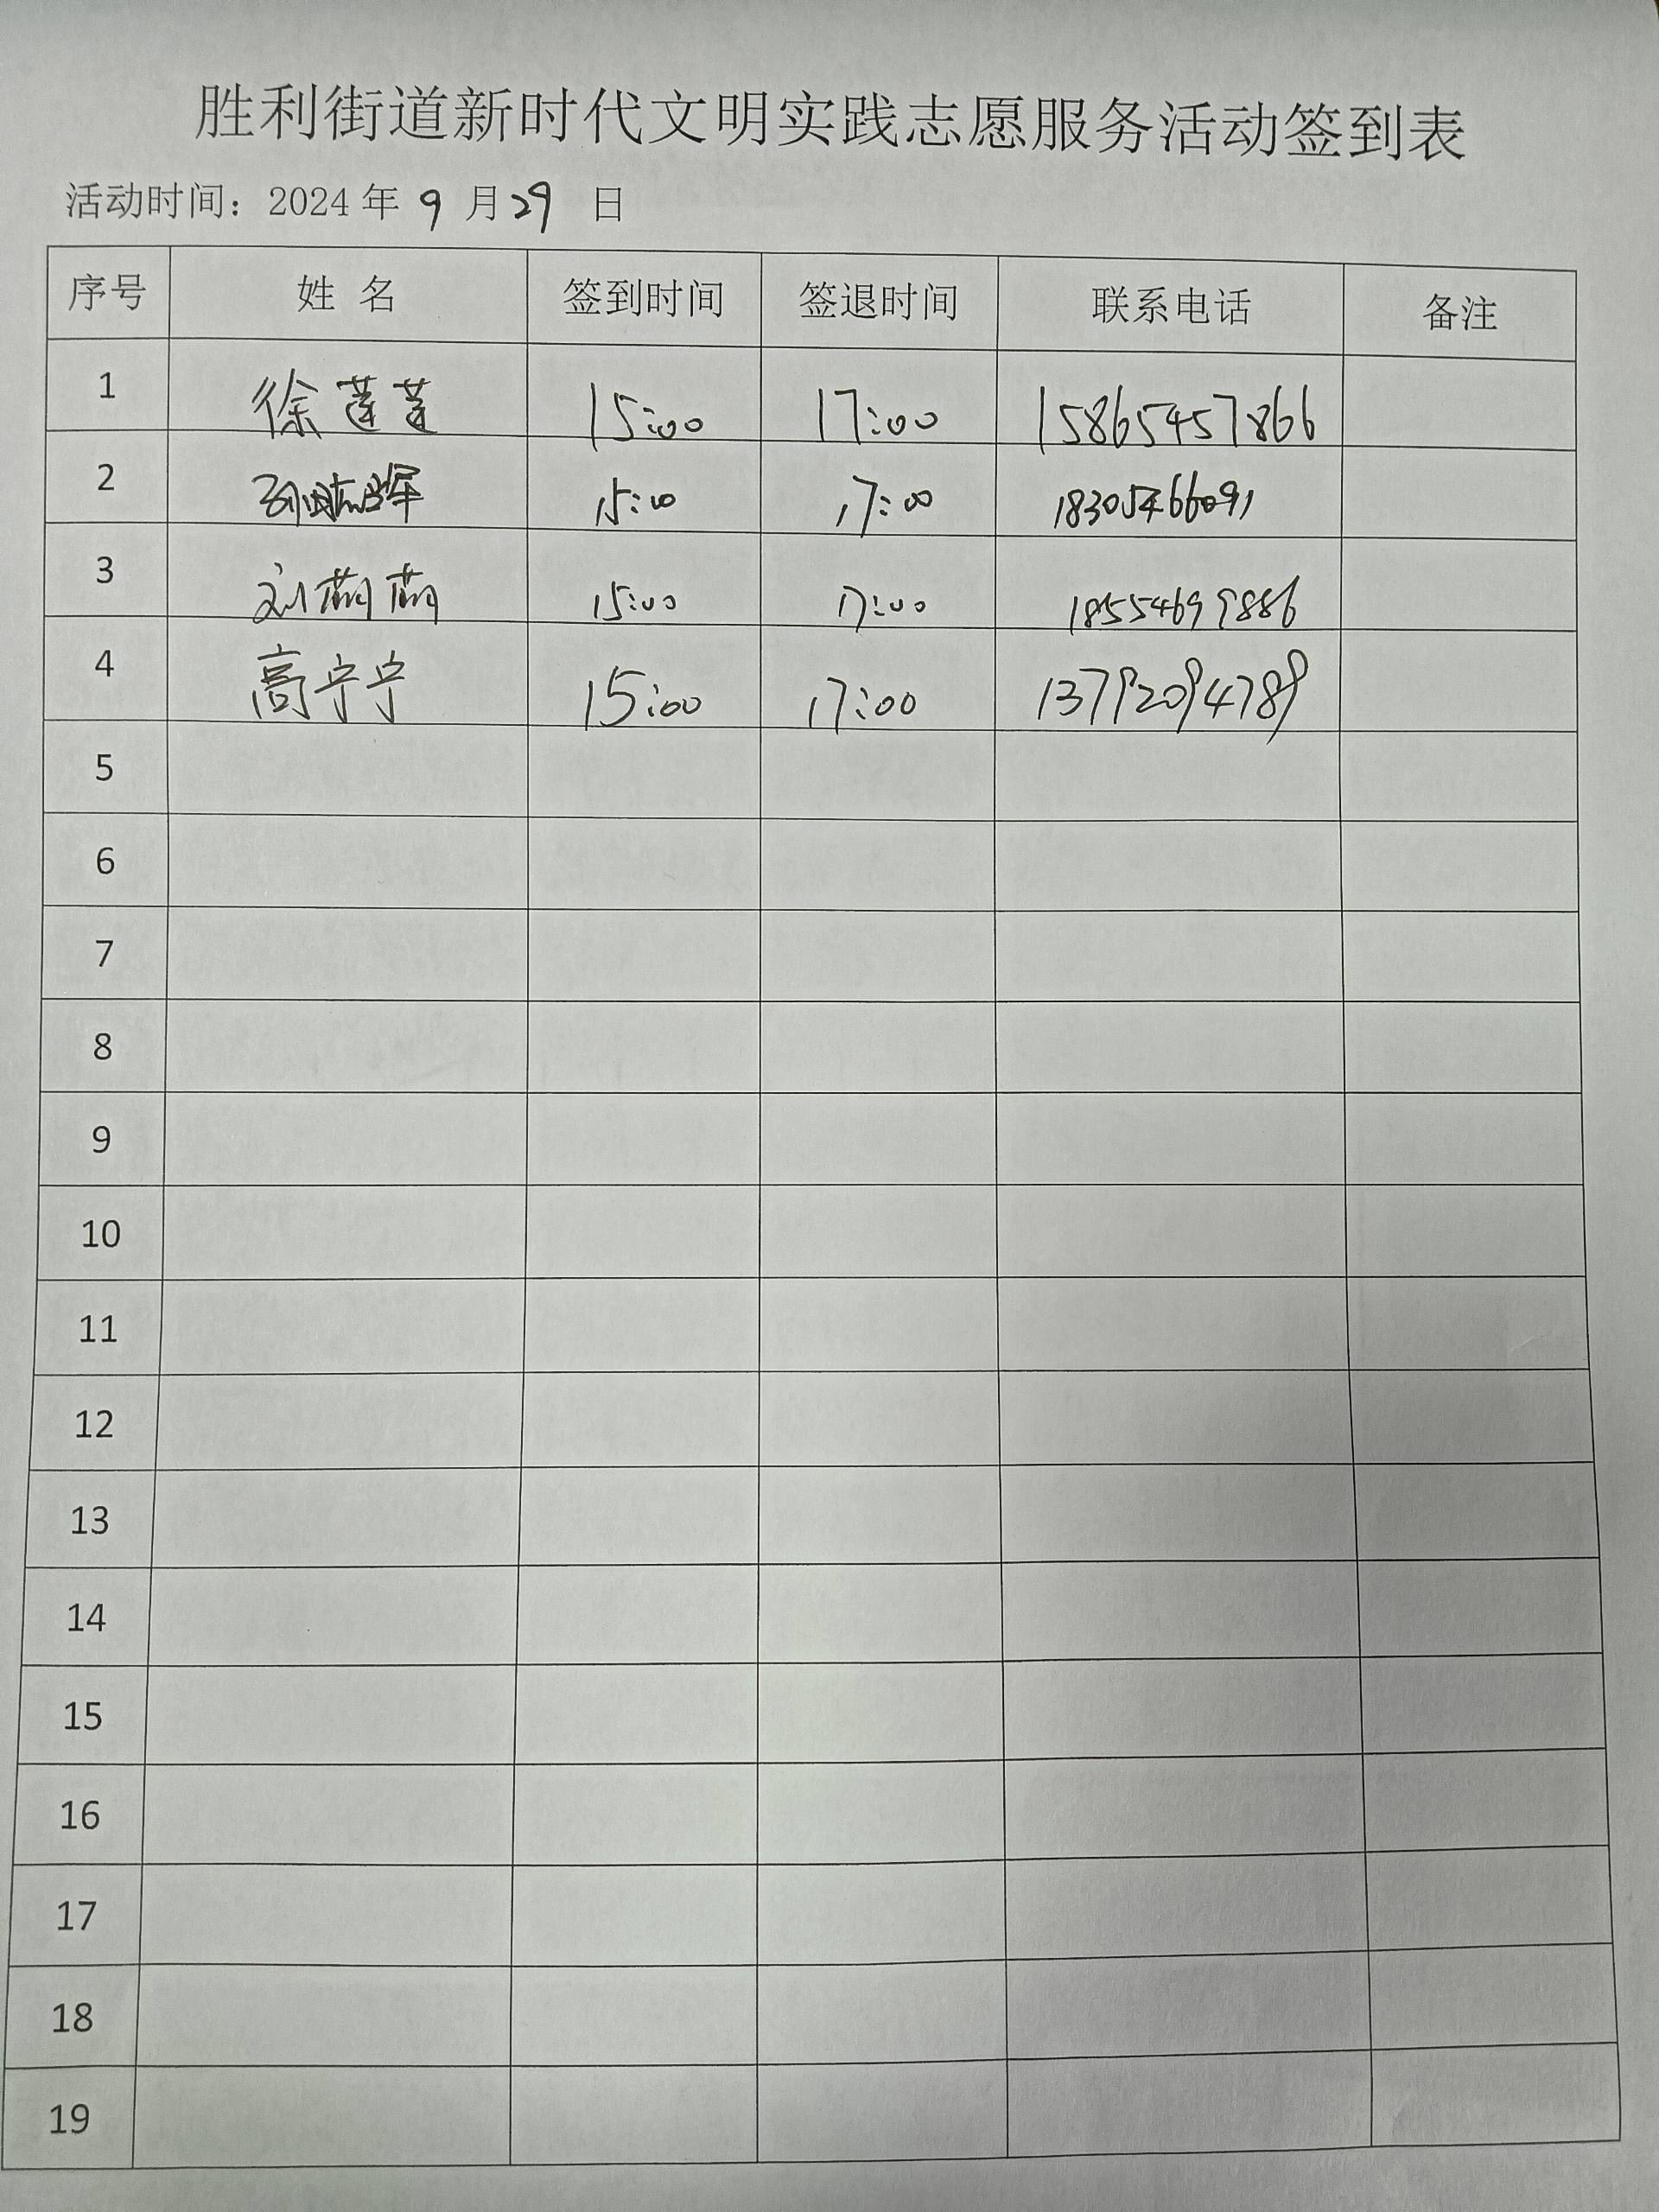 胜利街道新时代文明实践志愿服务活动签到表
活动时间：2024 年 9 月 29 日
序号 姓 名 签到时间 签退时间 联系电话 备注
1 徐莲莲 15:00 17:00 15865457866
2 孙晓辉 15:00 17:00 18305466091
3 刘萌萌 15:00 17:00 18554699886
4 高宁宁 15:00 17:00 13792094789
5
6
7
8
9
10
11
12
13
14
15
16
17
18
19